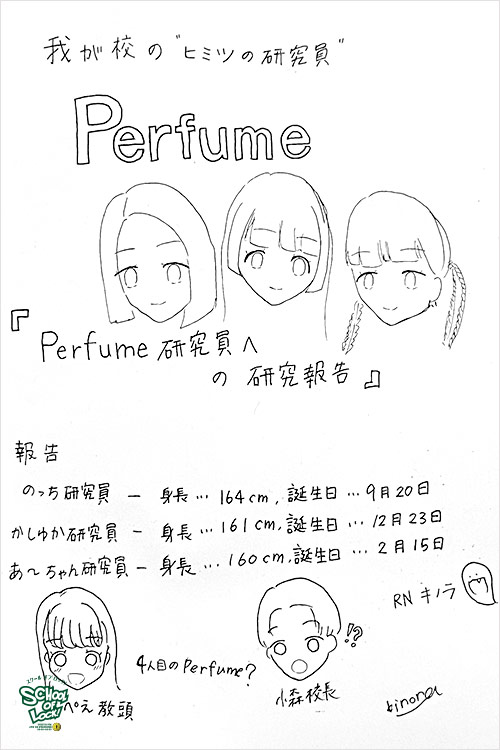 我が校の"ヒミツの研究員"
Perfume
『Perfume 研究員へ
の 研究報告』
報告
のっち研究員 ー 身長… 164cm, 誕生日…9月20日
かしゆか研究員 ー 身長… 161cm, 誕生日…12月23日
あ〜ちゃん研究員ー 身長… 160cm, 誕生日…2月15日
RN キノラ
4人目のPerfume?
!?
ぺえ教頭
小森校長
kinora
スクールオブロック!
SCHOOL
OF
LOCK!